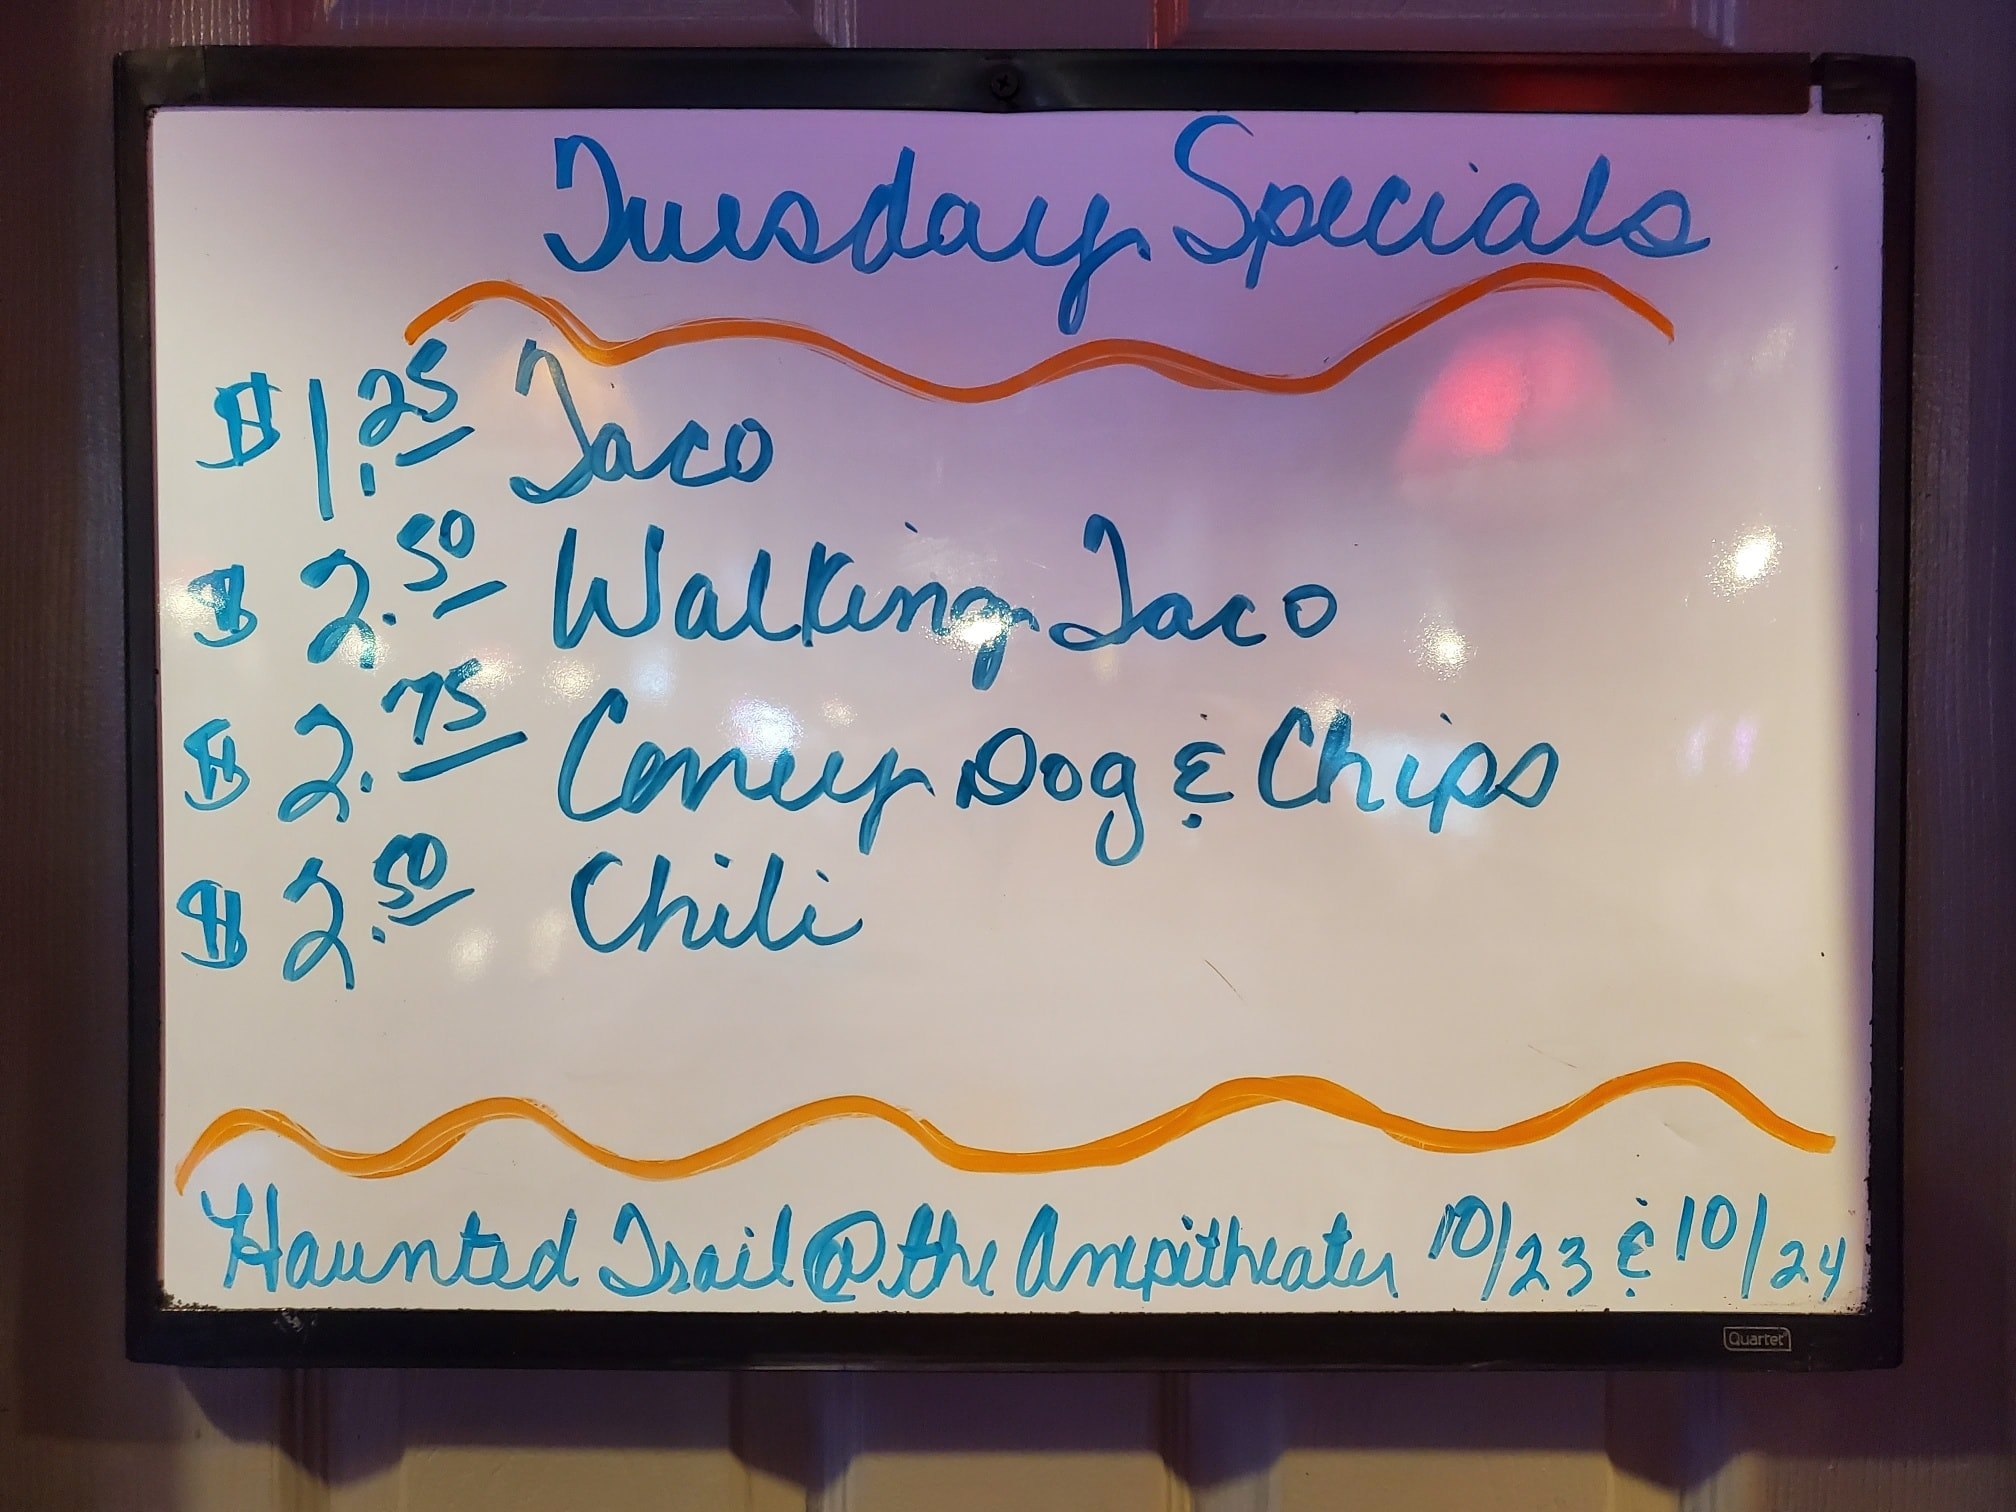 Tuesday Specials
$1.25 Taco
$2.50 Walking Taco
$2.75 Coney Dog & Chips
$2.50 Chili
Haunted Trail @ the Ampitheater 10/23 & 10/24
Quartet